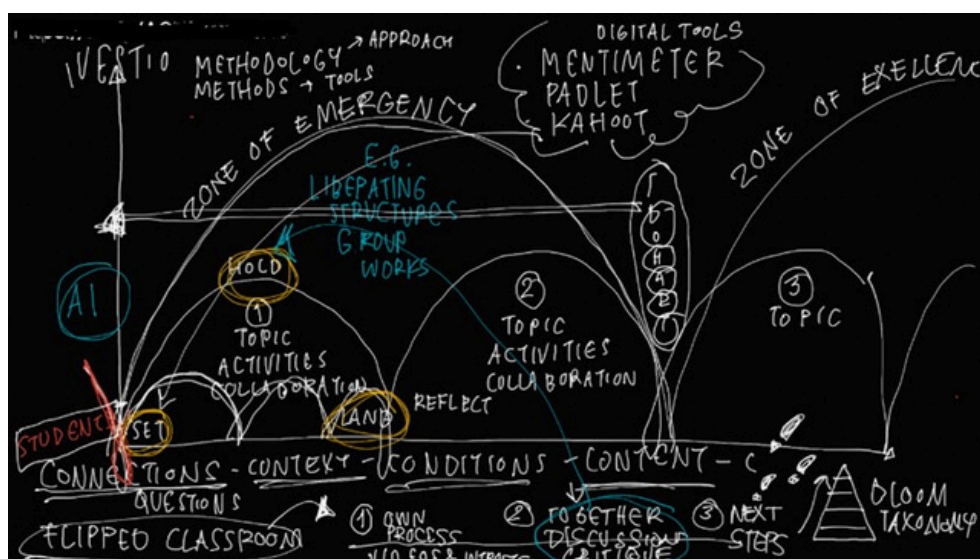 IVESTIO
METHODOLOGY → APPROACH
METHODS → TOOLS
DIGITAL TOOLS
· MENTIMETER
PADLET
KAHOOT
ZONE OF EMERGENCY
ZONE OF EXELLENC
E.G.
LIBEPATING
STRUCTURES
GROUP
WORKS
AI
HOLD
1
TOPIC
ACTIVITIES
COLLABORATION
2
TOPIC
ACTIVITIES
COLLABORATION
3
TOPIC
STUDENT
SET
LAND
REFLECT
CONNECTIONS - CONTEXT - CONDITIONS - CONTENT - C
QUESTIONS
FLIPPED CLASSROOM
1 OWN
PROCESS
2 TOGETHER
DISCUSSION
CRITIQUE
3 NEXT
STEPS
BLOOM